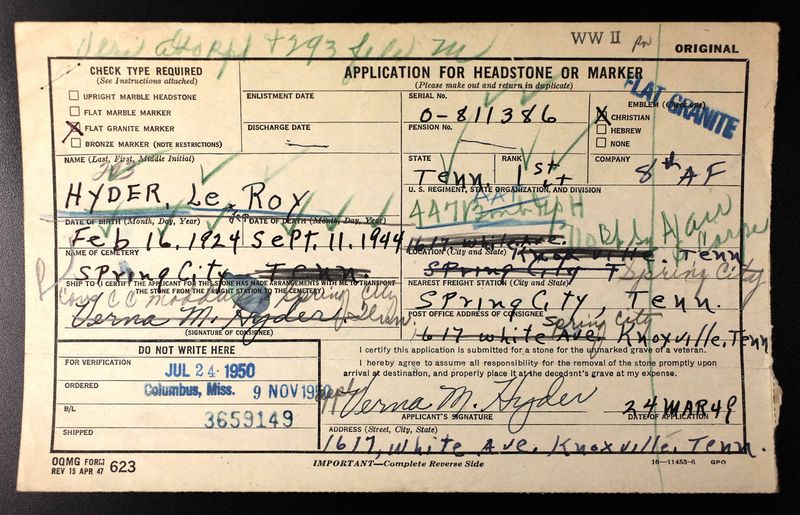 WW II
ORIGINAL
CHECK TYPE REQUIRED
(See Instructions attached)
UPRIGHT MARBLE HEADSTONE
FLAT MARBLE MARKER
X FLAT GRANITE MARKER
BRONZE MARKER (NOTE RESTRICTIONS)
APPLICATION FOR HEADSTONE OR MARKER
(Please make out and return in duplicate)
ENLISTMENT DATE
DISCHARGE DATE
SERIAL No.
O-811386
PENSION No.
EMBLEM (Check one)
X CHRISTIAN
HEBREW
NONE
FLAT GRANITE
NAME (Last, First, Middle Initial)
HYDER, Le Roy
STATE
Tenn
RANK
1st Lt
COMPANY
8th AF
U. S. REGIMENT, STATE ORGANIZATION, AND DIVISION
447 Bomb Gp H
DATE OF BIRTH (Month, Day, Year)
Feb 16, 1924
DATE OF DEATH (Month, Day, Year)
Sept. 11. 1944
NAME OF CEMETERY
Spring City Tenn.
LOCATION (City and State)
1617 White Ave.
Knoxville, Tenn
Spring City T
Spring City
SHIP TO (I CERTIFY THE APPLICANT FOR THIS STONE HAS MADE ARRANGEMENTS WITH ME TO TRANSPORT THE STONE FROM THE FREIGHT STATION TO THE CEMETERY)
Spring City
Verna M. Hyder
(SIGNATURE OF CONSIGNEE)
NEAREST FREIGHT STATION (City and State)
Spring City, Tenn.
POST OFFICE ADDRESS OF CONSIGNEE
Spring City
1617 White Ave. Knoxville, Tenn
DO NOT WRITE HERE
FOR VERIFICATION
JUL 24 1950
ORDERED
Columbus, Miss. 9 NOV 1950
B/L
3659149
SHIPPED
I certify this application is submitted for a stone for the unmarked grave of a veteran.
I hereby agree to assume all responsibility for the removal of the stone promptly upon arrival at destination, and properly place it at the decedent's grave at my expense.
Verna M. Hyder
APPLICANT'S SIGNATURE
24 MAR 49
DATE OF APPLICATION
ADDRESS (Street, City, State)
1617, White Ave. Knoxville, Tenn.
OQMG FORM 623
REV 15 APR 47
IMPORTANT—Complete Reverse Side
16—11453-6 GPO